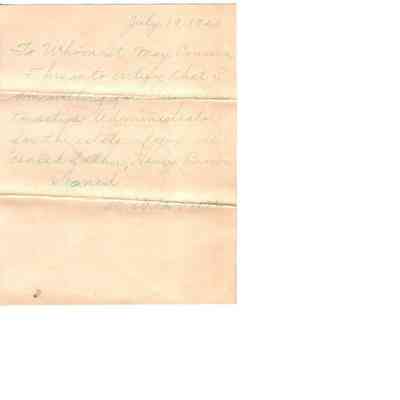 July 19, 19
To Whom it May Concern
This is to certify that I
am willing for
to act as Administrator
for the estate of my de
ceased father, Henry Brown
Signed